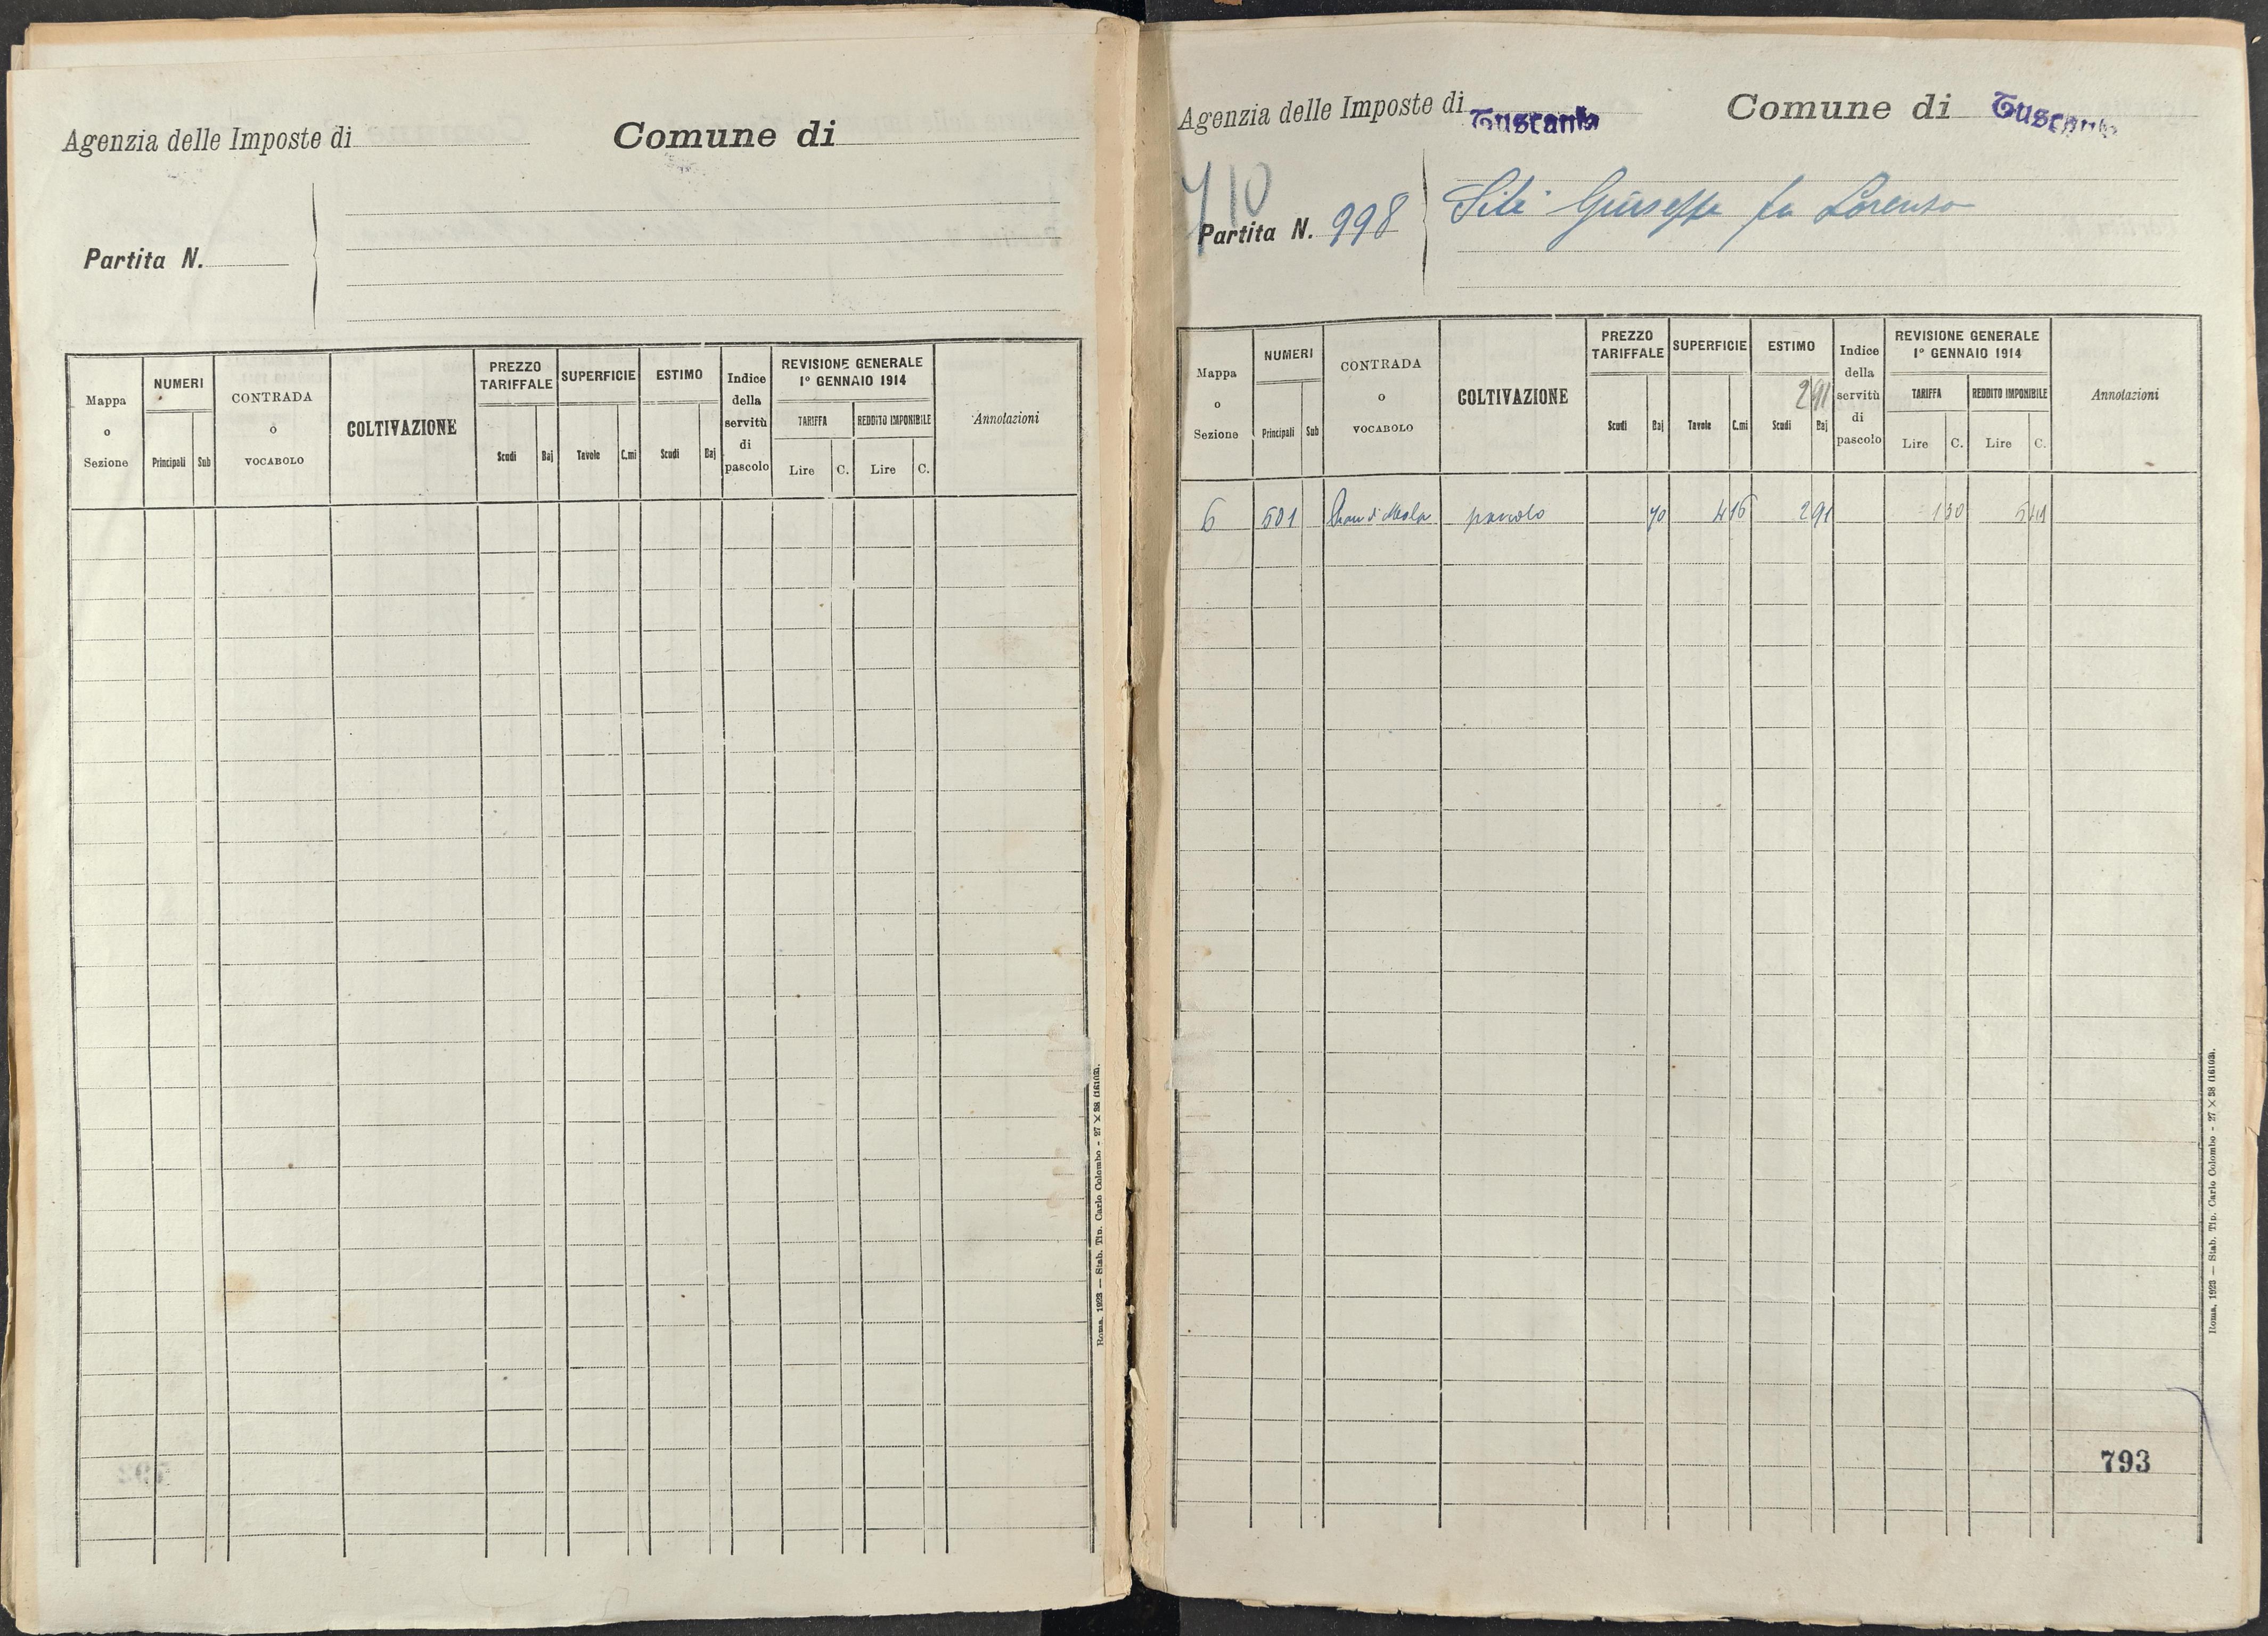 Agenzia delle Imposte di
Comune di
Partita N.
Mappa o Sezione
NUMERI
Principali Sub
CONTRADA o VOCABOLO
COLTIVAZIONE
PREZZO TARIFFALE
Scudi Baj
SUPERFICIE
Tavole C.mi
ESTIMO
Scudi Baj
Indice della servitù di pascolo
REVISIONE GENERALE
1° GENNAIO 1914
TARIFFA
Lire C.
REDDITO IMPONIBILE
Lire C.
Annotazioni
Roma, 1923 — Stab. Tip. Carlo Colombo - 27 × 38 (16103).
Agenzia delle Imposte di Tuscania
Comune di Tuscania
710
Partita N. 998
Siti Giuseppe fu Lorenzo
Mappa o Sezione
NUMERI
Principali Sub
CONTRADA o VOCABOLO
COLTIVAZIONE
PREZZO TARIFFALE
Scudi Baj
SUPERFICIE
Tavole C.mi
ESTIMO
291
Scudi Baj
Indice della servitù di pascolo
REVISIONE GENERALE
1° GENNAIO 1914
TARIFFA
Lire C.
REDDITO IMPONIBILE
Lire C.
Annotazioni
6 501 di Mola pascolo 70 4 16 2 91 1 30 5 41
793
Roma, 1923 — Stab. Tip. Carlo Colombo - 27 × 38 (16103).